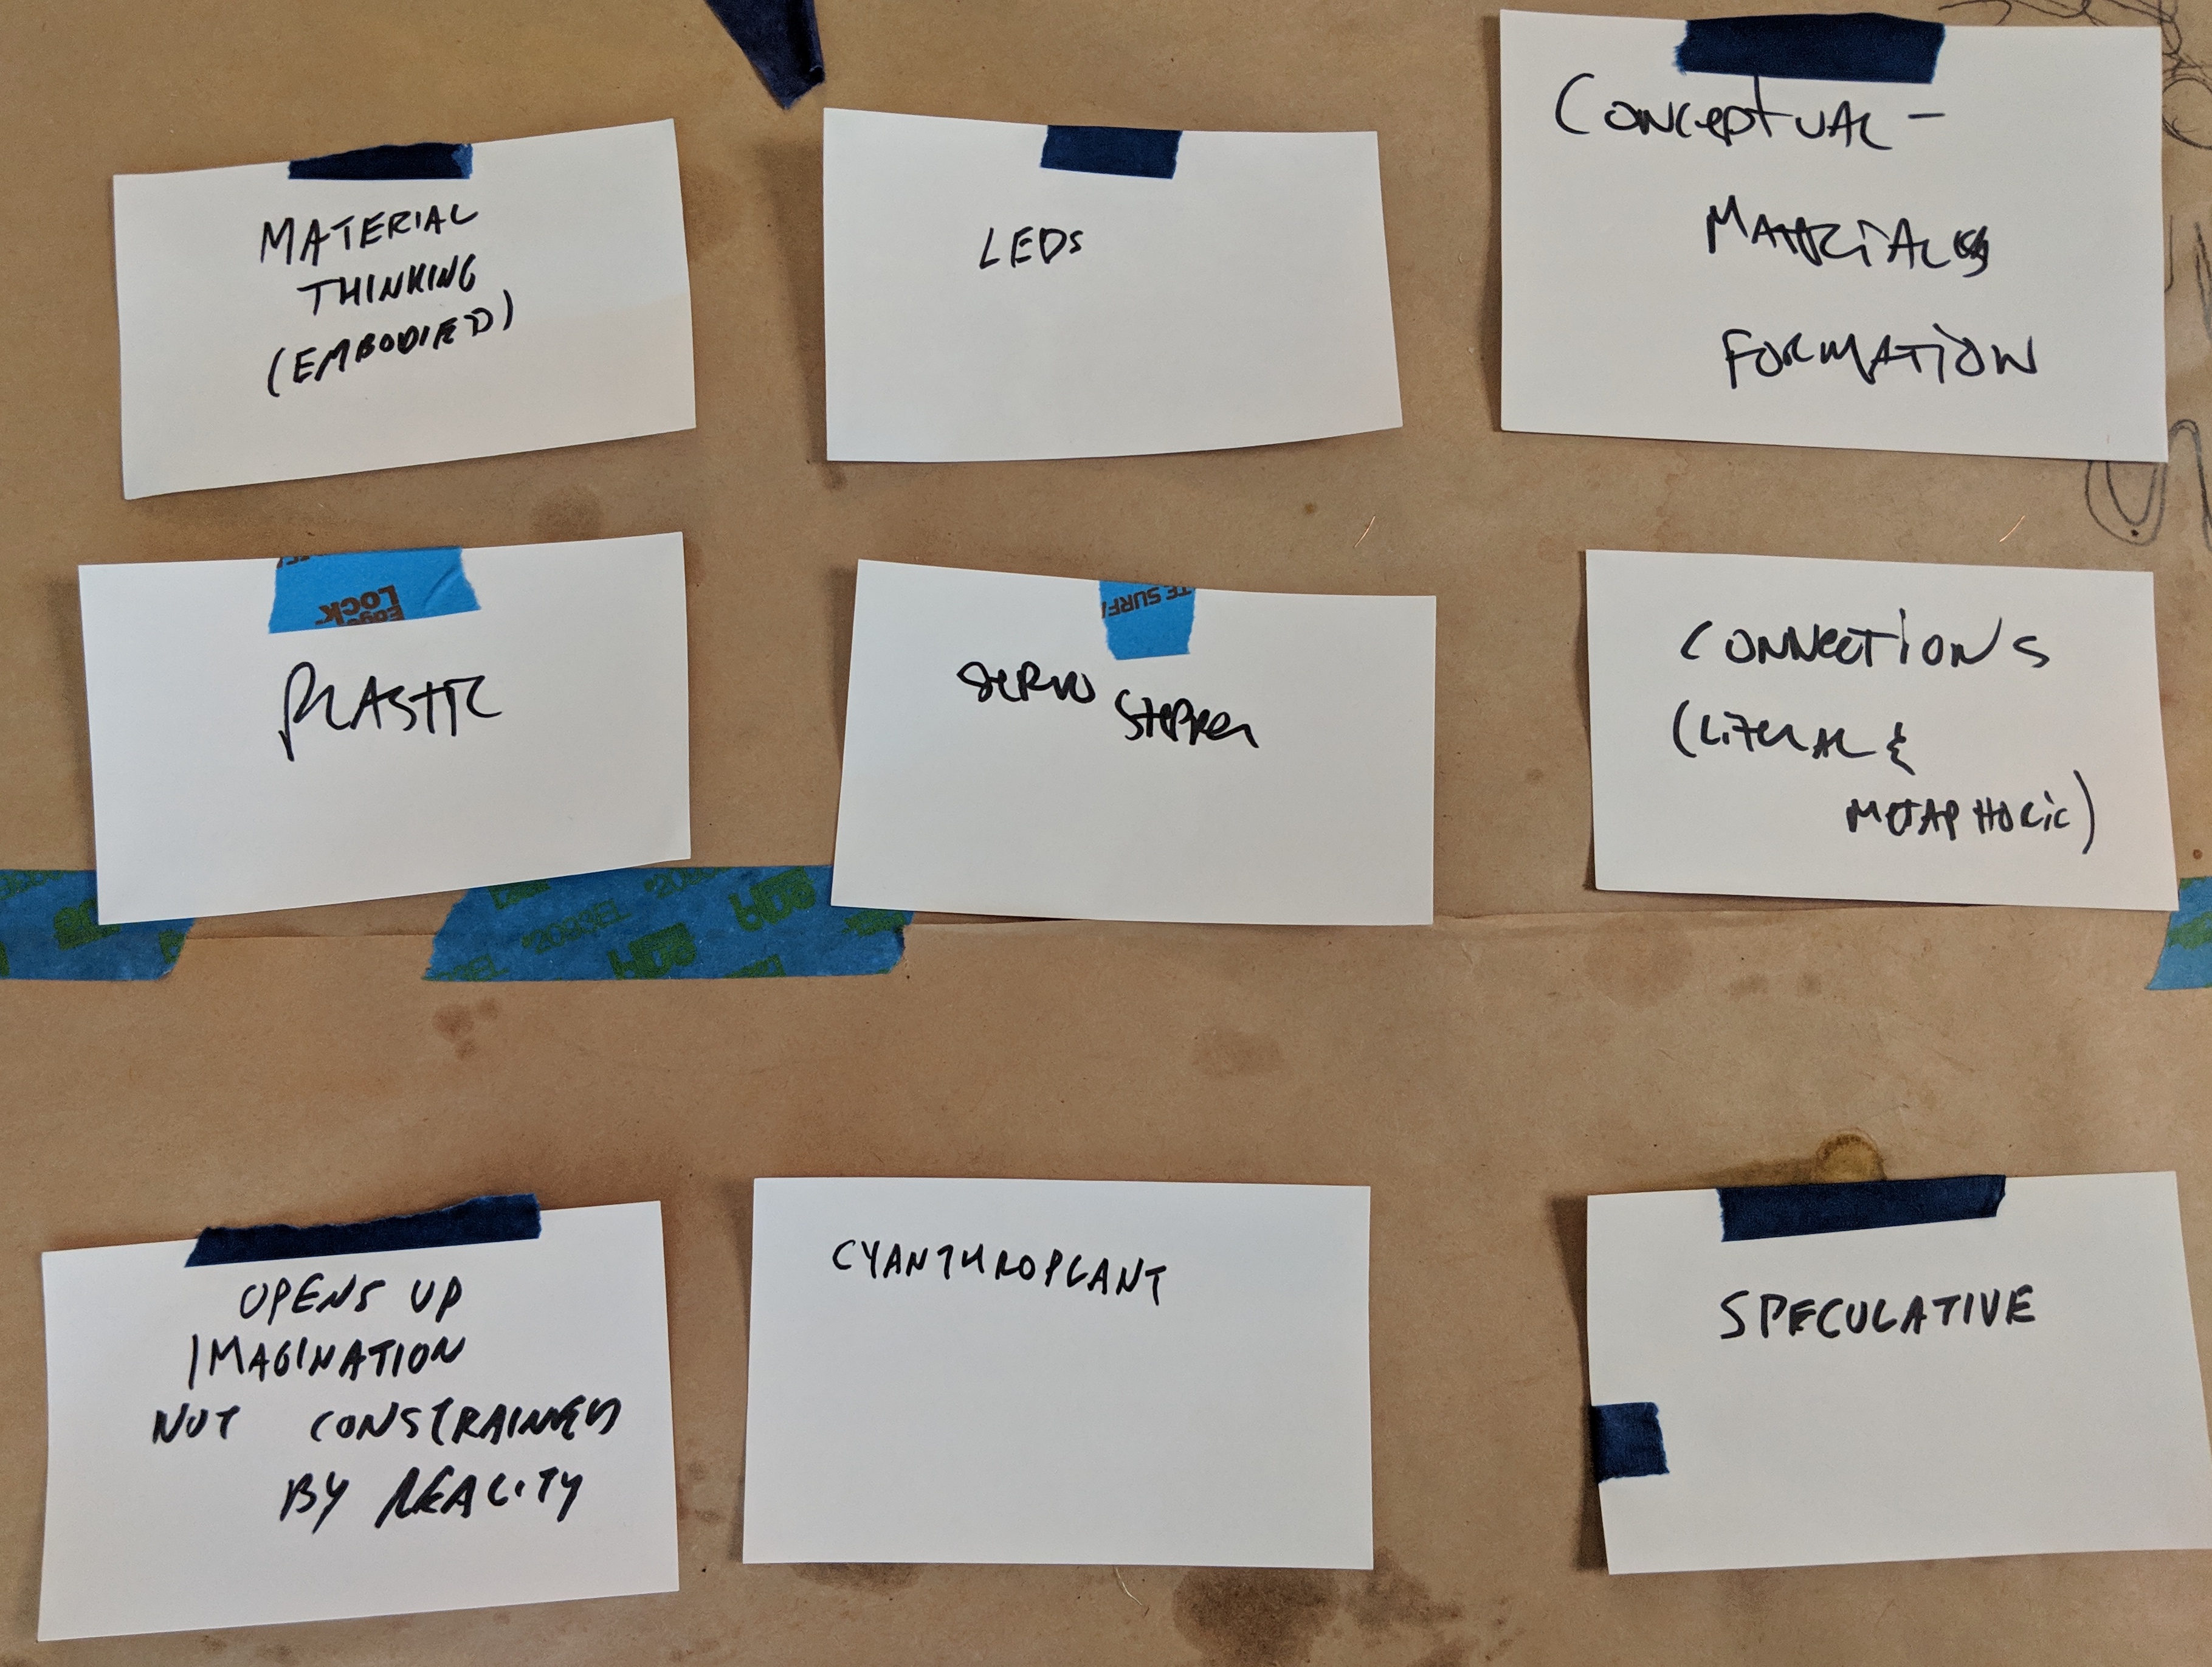 MATERIAL
THINKING
(EMBODIED)
LEDS
CONCEPTUAL -
MATERIAL
FORMATION
PLASTIC
SERVO STEPPER
CONNECTIONS
(LITERAL &
METAPHORIC)
OPENS UP
IMAGINATION
NOT CONSTRAINED
BY REALITY
CYANTHROPLANT
SPECULATIVE
LOCK
Edge
TE SURF